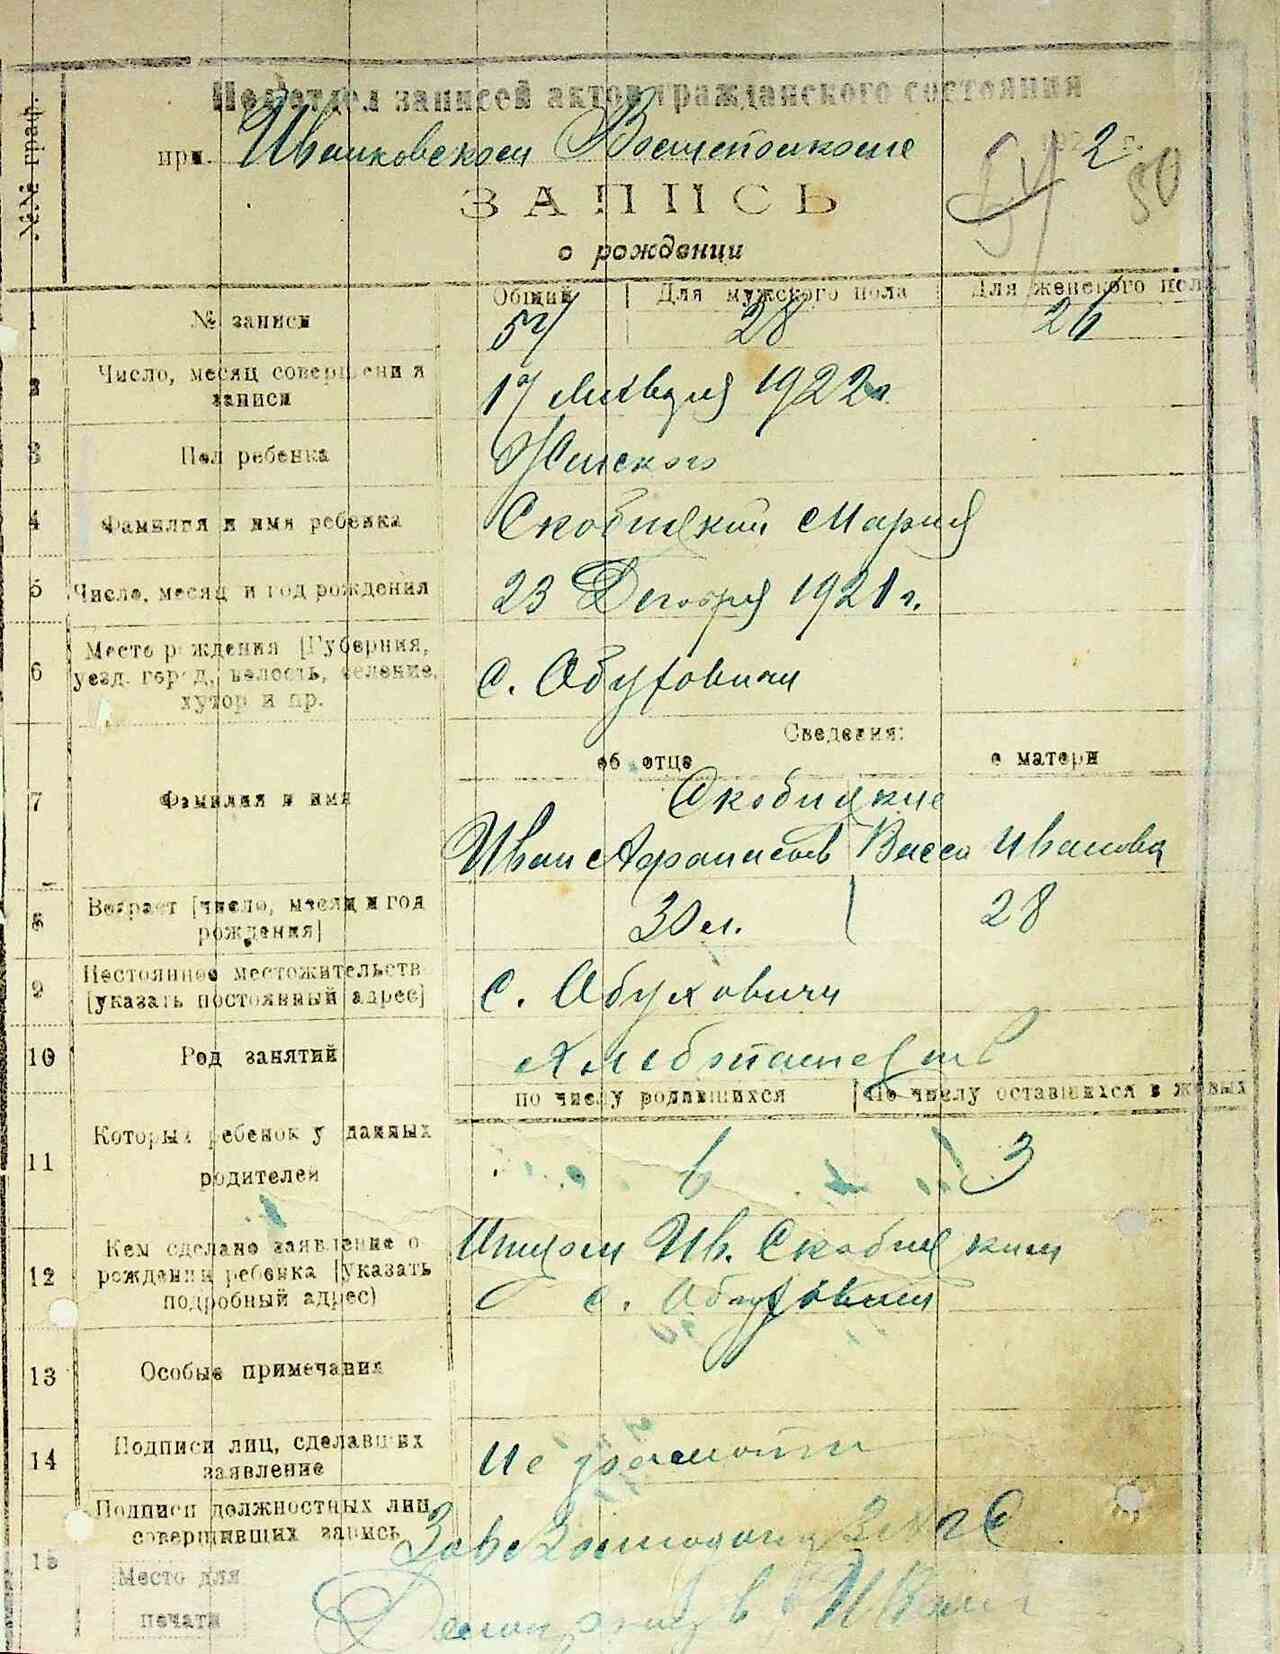 Подотдел записей актов гражданского состояния
при Иванковском Волисполкоме
2 г.
54 50
ЗАПИСЬ
о рождении
№№ граф.
Общий Для мужского пола Для женского пола
1 № записи 54 28 26
2 Число, месяц совершения записи 17 Января 1922 г.
3 Пол ребенка Женского
4 Фамилия и имя ребенка Скобицкий Мария
5 Число, месяц и год рождения 23 Декабря 1921 г.
6 Место рождения [Губерния,
уезд, город, волость, селение,
хутор и пр. с. Обуховичи
Сведения:
об отце о матери
7 Фамилия и имя Скобицкие
Иван Афанасьев Васса Иванова
8 Возраст [число, месяц и год
рождения] 30 л. 28
9 Постоянное местожительств
[указать постоянный адрес] с. Обуховичи
10 Род занятий Хлебопашество
по числу родившихся по числу оставшихся в живых
11 Который ребенок у данных
родителей 6 3
12 Кем сделано заявление о
рождении ребенка [указать
подробный адрес) Отцом Ив. Скобицким
с. Обуховичи
13 Особые примечания
14 Подписи лиц, сделавших
заявление Не грамотн
15 Подписи должностных лиц,
совершивших запись
Место для
печати